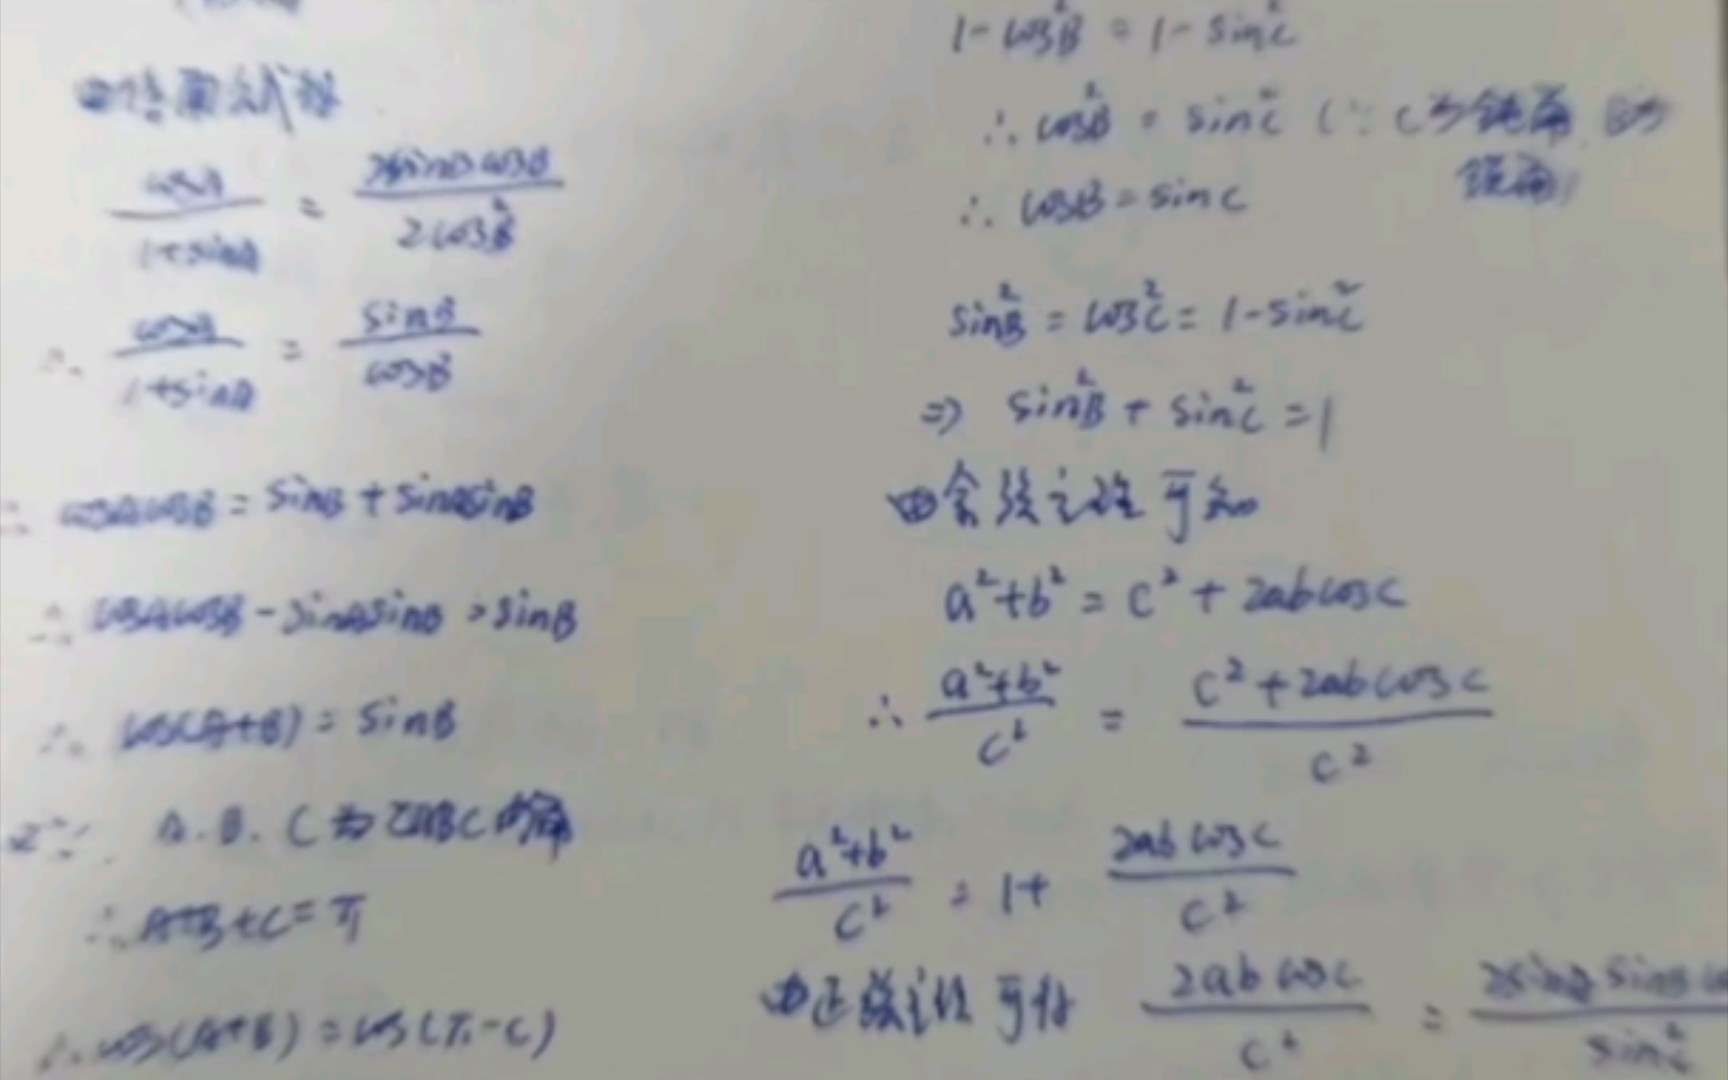 cosA/(1+sinA) = 2sinBcosB/(2cos²B)
∴ cosA/(1+sinA) = sinB/cosB
∴ cosAcosB = sinB + sinAsinB
∴ cosAcosB - sinAsinB = sinB
∴ cos(A+B) = sinB
又∵ A.B.C为
∴ A+B+C = π
∴ cos(A+B) = cos(π-C)
1-cos²B = 1-sin²C
∴ cos²B = sin²C (∵ C为钝角, B为
锐角)
∴ cosB = sinC
sin²B = cos²C = 1-sin²C
⇒ sin²B + sin²C = 1
由余弦定理可知
a²+b² = c² + 2abcosC
∴ (a²+b²)/c² = (c²+2abcosC)/c²
(a²+b²)/c² = 1+ 2abcosC/c²
由正弦定理可得 2abcosC/c² = 2sinA sinB co/sin²C